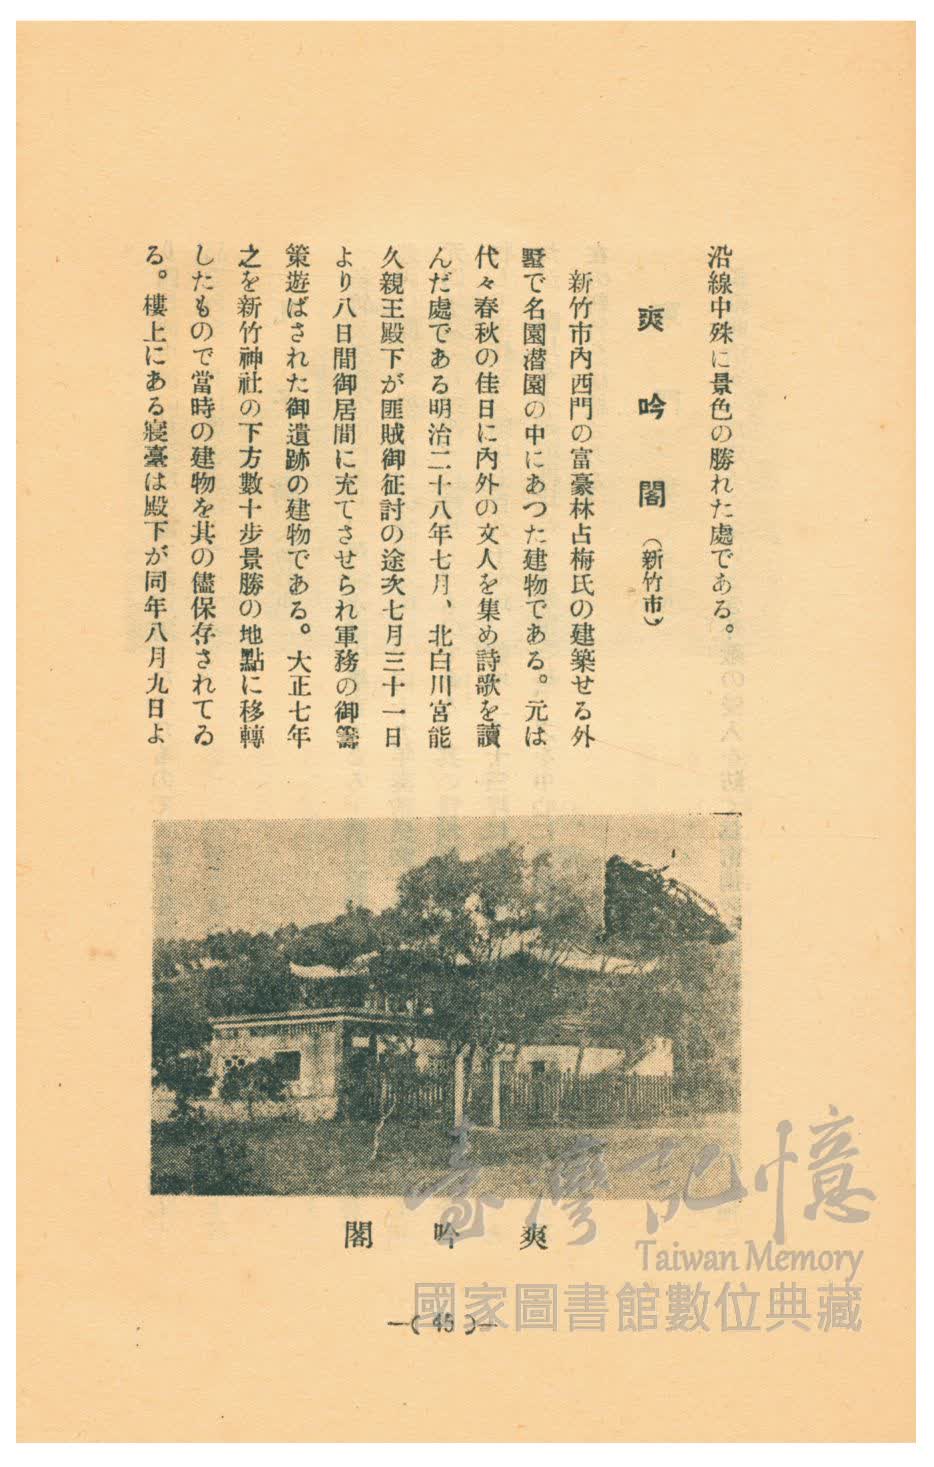 沿線中殊に景色の勝れた處である。
爽吟閣（新竹市）
新竹市內西門の富豪林占梅氏の建築せる外
墅で名園潜園の中にあつた建物である。元は
代々春秋の佳日に內外の文人を集め詩歌を讀
んだ處である明治二十八年七月、北白川宮能
久親王殿下が匪賊御征討の途次七月三十一日
より八日間御居間に充てさせられ軍務の御籌
策遊ばされた御遺跡の建物である。大正七年
之を新竹神社の下方數十步景勝の地點に移轉
したもので當時の建物を其の儘保存されてゐ
る。樓上にある寢臺は殿下が同年八月九日よ
爽吟閣
—( 45 )—
臺灣記憶
Taiwan Memory
國家圖書館數位典藏